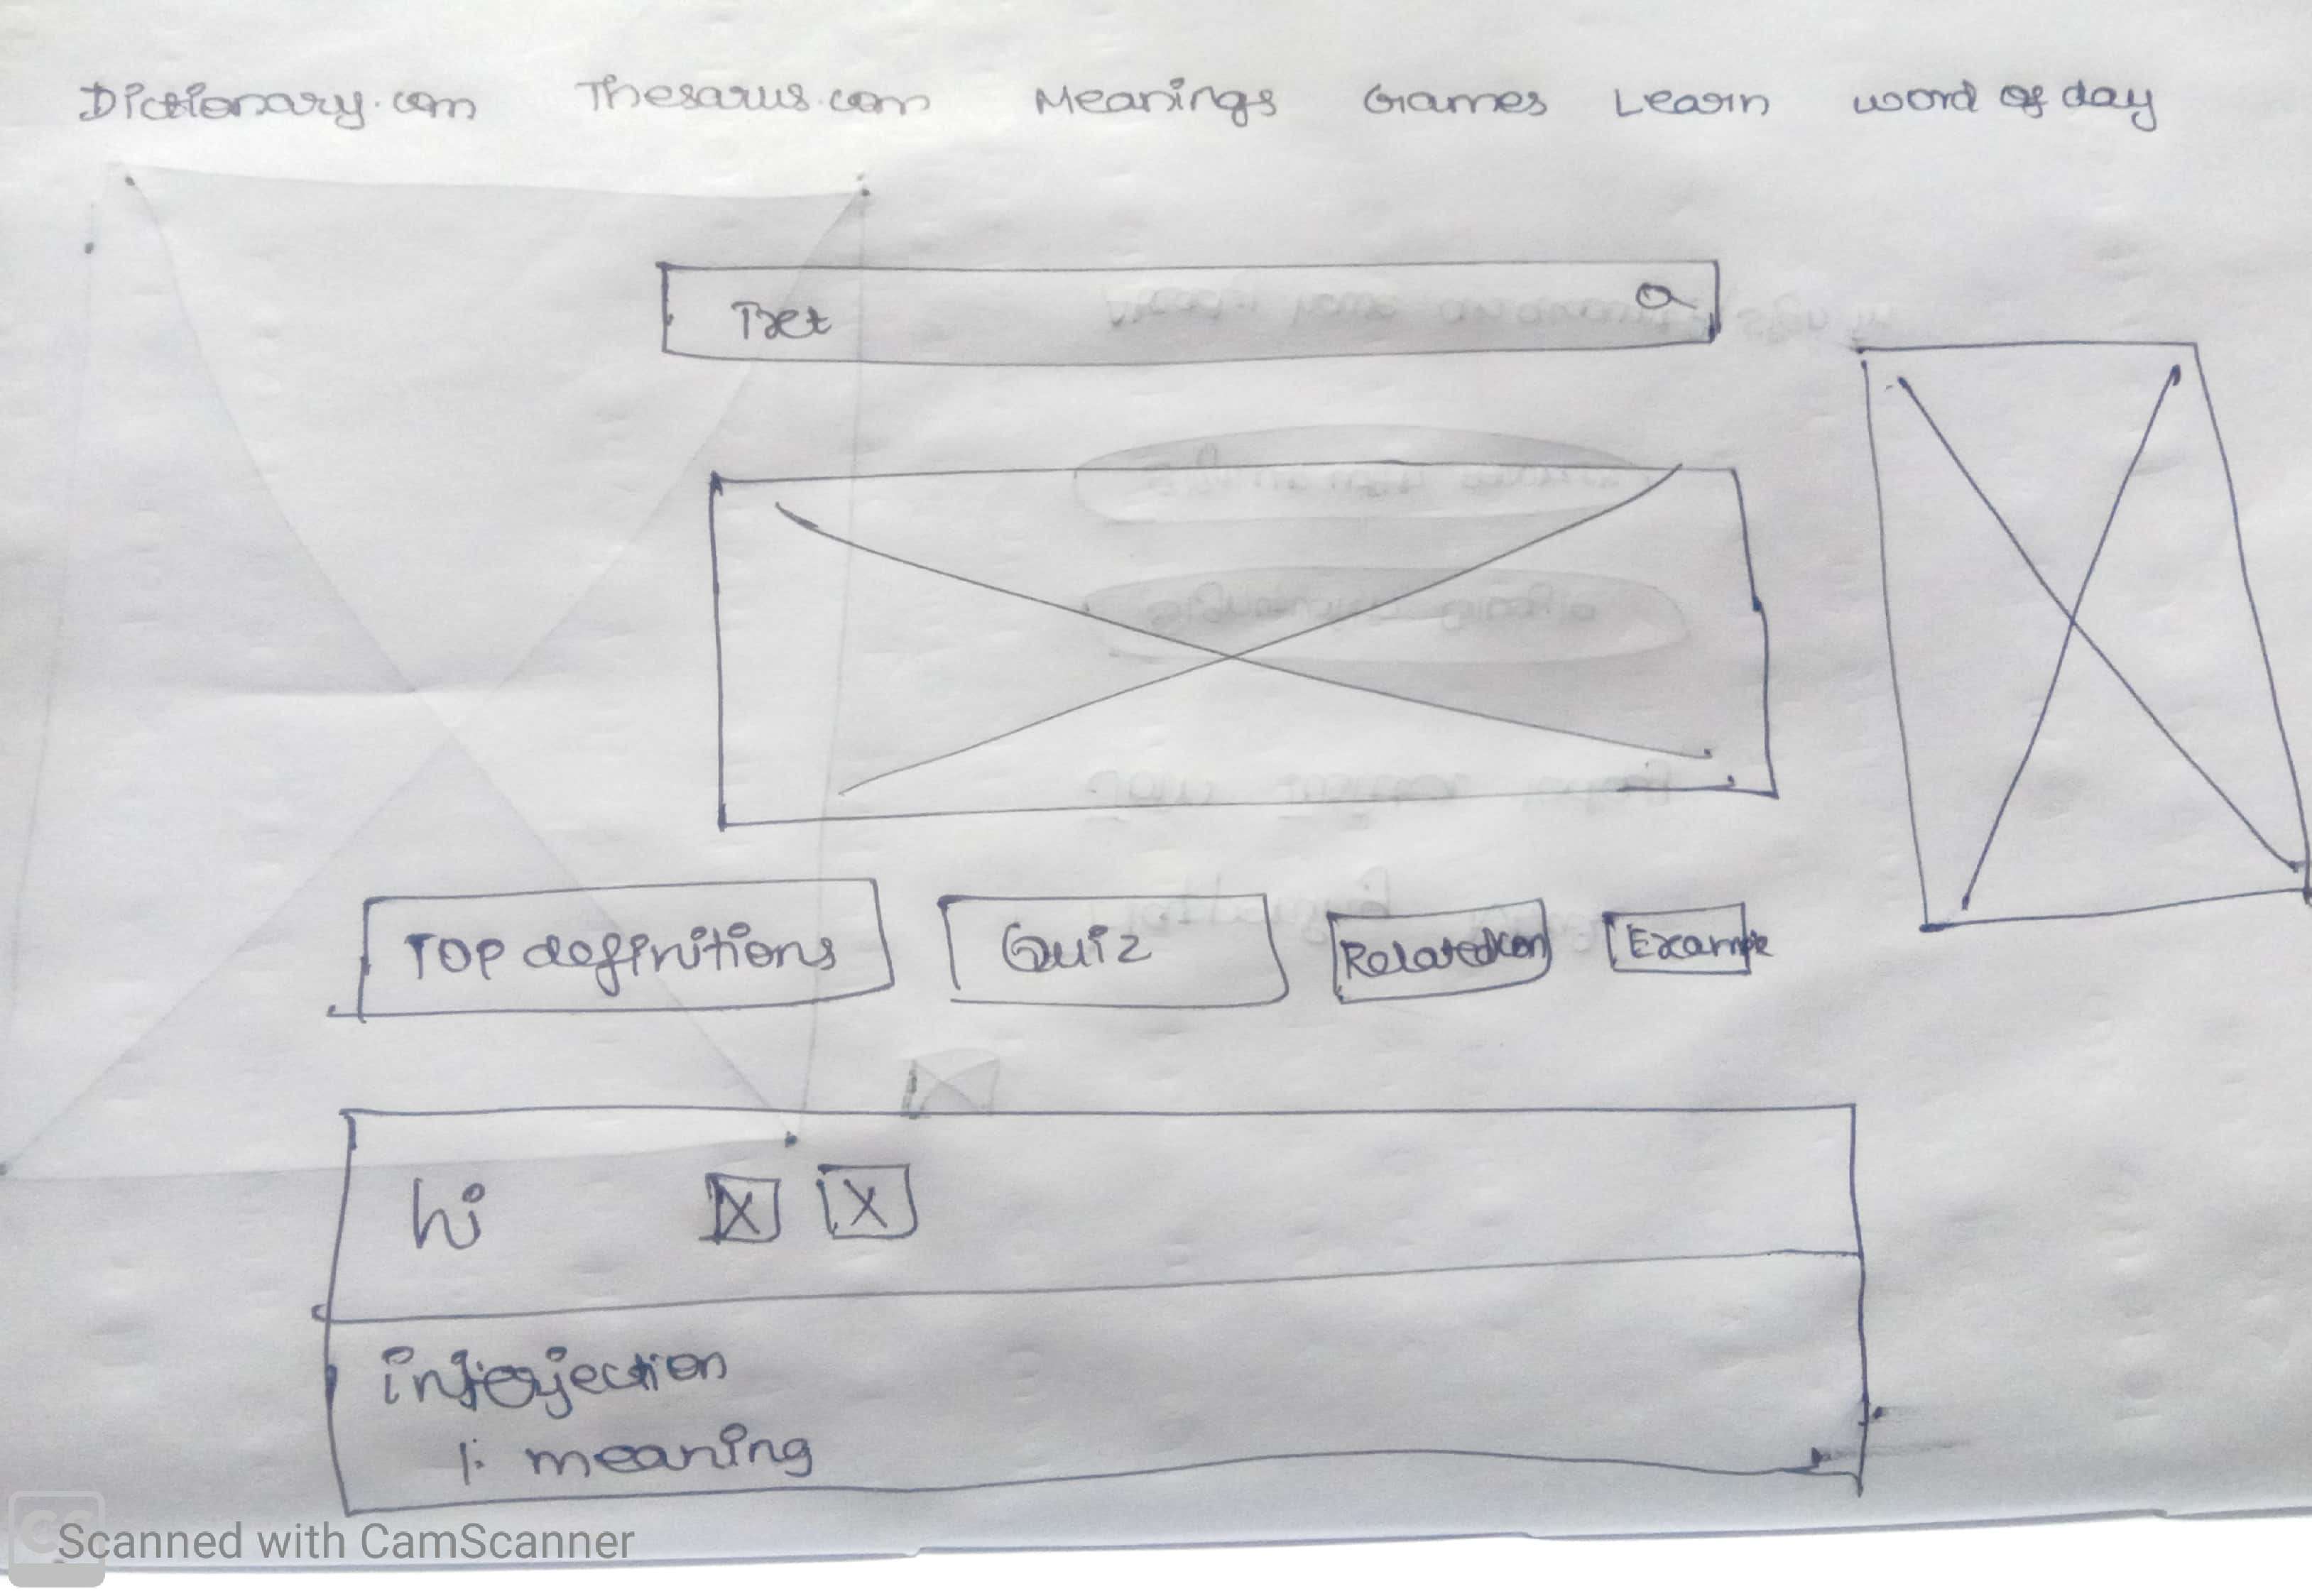 Dictionary.com Thesarus.com Meanings Games Learn word of day
TOP definitions Quiz Related con Example
hi
interjection
1: meaning
Scanned with CamScanner